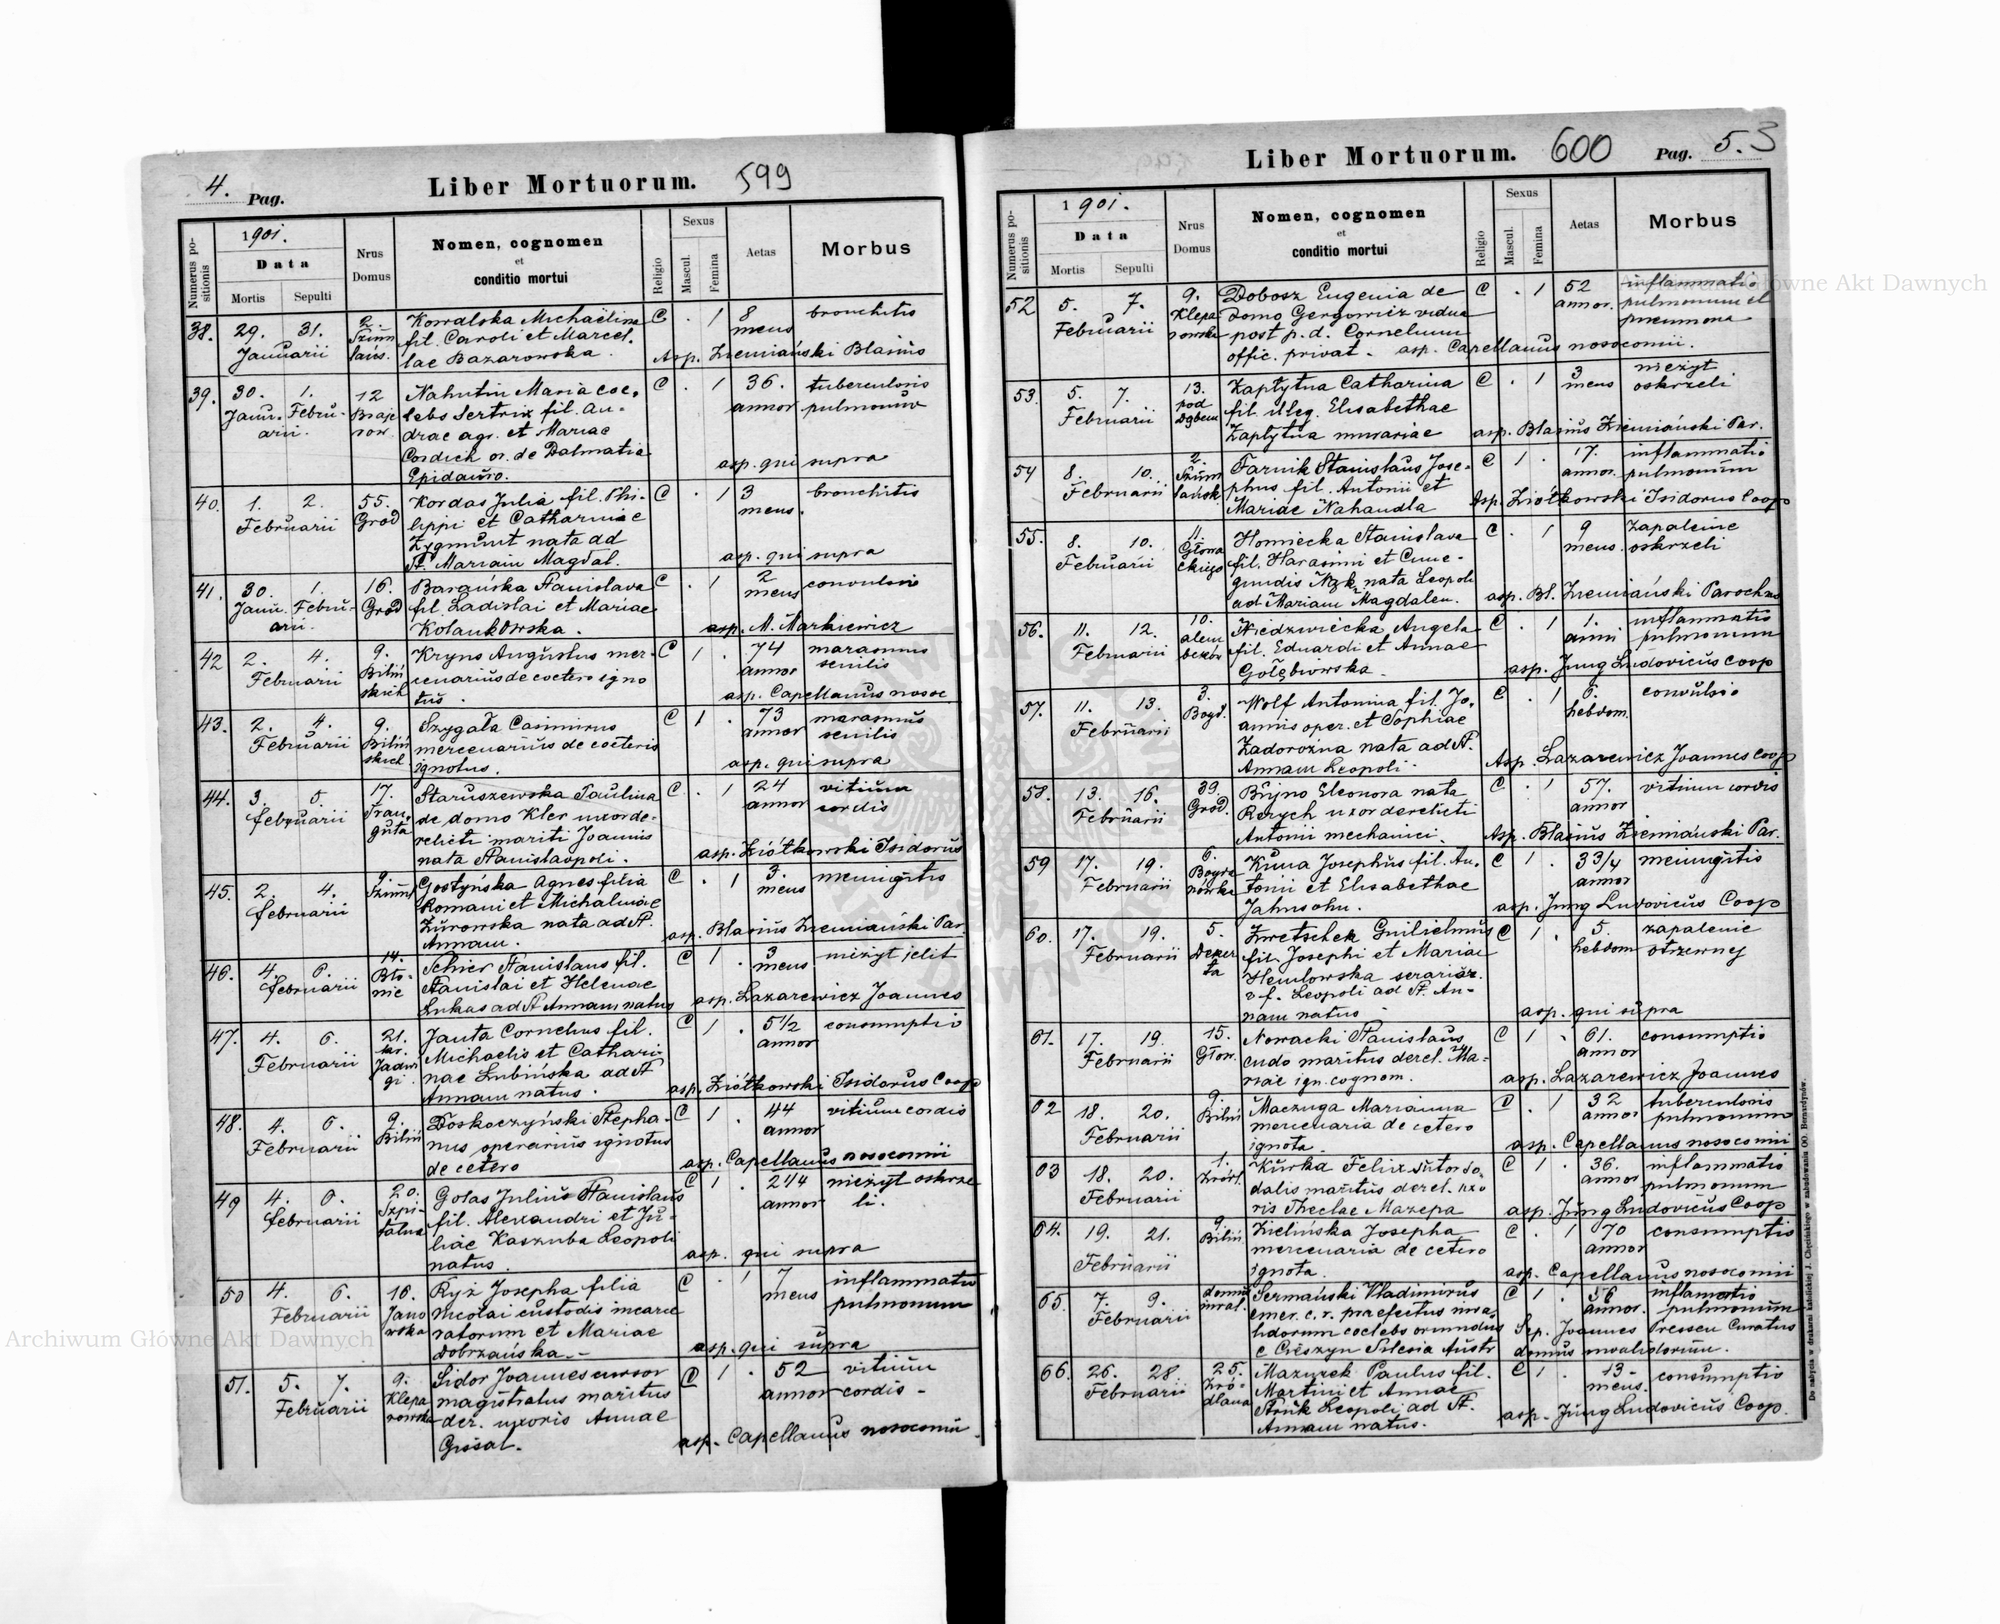 4. Pag.
Liber Mortuorum.
599
Numerus positionis
1901.
Data
Mortis
Sepulti
Nrus Domus
Nomen, cognomen
et
conditio mortui
Religio
Sexus
Mascul.
Femina
Aetas
Morbus
38. 29. 31. Kowalska Michaelina C . 1 8 bronchitis
Januarii fil. Caroli et Marcel- mens
lae Bazarowska. Asp. Ziemiański Blasius
39. 30. 1. 12 Nahutin Maria cae- C . 1 36. tuberculosis
Janu- Febru- lebs sertrix fil. An- annor pulmonum
arii. dreae agr. et Mariae
Cordich or. de Dalmatia asp. qui supra
Epidauro.
40. 1. 2. 55. Kordas Julia fil. Phi- C . 1 3 bronchitis
Februarii Grod lippi et Catharinae mens.
Zygmunt nata ad
St. Mariam Magdal. asp. qui supra
41. 30. 1. 16. Barańska Stanislava C . 1 2 convulsio
Janu. Febru- Grod fil. Ladislai et Mariae mens
arii. Kolankowska. asp. M. Markiewicz
42 2. 4. 9. Kryns Augustus mer- C 1 . 74 marasmus
Februarii Biliń cenarius de coetero igno annor senilis
skich tus. asp. Capellanus nosoc
43. 2. 4. 9. Szygała Casimirus C 1 . 73 marasmus
Februarii Biliń mercenarius de coeteris annor senilis
skich ignotus. asp. qui supra
44. 3. 5. 17. Staruszewska Paulina C . 1 24 vitium
februarii Trau- de domo Kler uxor de- annor cordis
guta relicti mariti Joannis
nata Stanislaopoli. asp. Ziółkowski Isidorus
45. 2. 4. 9. Gostyńska Agnes filia C . 1 3. meningitis
februarii Romani et Michalinae mens
Żurowska nata ad St.
Annam. asp. Blasius Ziemiański Par.
46. 4. 6. 14. Schier Stanislaus fil. C 1 . 3 nieżyt jelit
februarii Bło- Stanislai et Helenae mens
nie Lukas ad St Annam natus asp. Lazarewicz Joannes
47. 4. 6. 21. Janta Cornelius fil. C 1 . 5 1/2 consumptio
Februarii kr. Michaelis et Cathari- annor
Jadwi nae Lubińska ad St
gi Annam natus. asp. Ziółkowski Isidorus Coop
48. 4. 6. 9. Doskoczyński Stepha- C 1 . 44 vitium cordis
Februarii Biliń nus operarius ignotus annor
de cetero asp. Capellanus nosocomii
49 4. 6. 20. Golas Julius Stanislaus C 1 . 2 1/4 nieżyt oskrze
februarii Szpi- fil. Alexandri et Ju- annor li.
talna liae Kaszuba Leopoli
natus. asp. qui supra
50 4. 6. 10. Ryż Josepha filia C . 1 7 inflammatio
Februarii Jano Nicolai custodis incarce mens pulmonum
wska ratorum et Mariae
Dobrzańska.- asp. qui supra
51. 5. 7. 9. Sidor Joannes cursor C 1 . 52 vitium
Februarii Klepa magistratus maritus annor cordis -
rowska der. uxoris Annae
asp. Capellanus nosocomii
Liber Mortuorum.
600
Pag. 5.
Numerus positionis
1901.
Data
Mortis
Sepulti
Nrus Domus
Nomen, cognomen
et
conditio mortui
Religio
Sexus
Mascul.
Femina
Aetas
Morbus
52 5. 7. 9. Dobosz Eugenia de C . 1 52 inflammatio
Februarii Klepa domo Gergowicz vidua annor. pulmonum et
rowska post p. d. Cornelium pneumona
offic. privat. asp. Capellanus nosocomii.
53. 5. 7. 13. Zaplytna Catharina C . 1 3 nieżyt
Februarii pod fil. illeg. Elisabethae mens oskrzeli
Dębem Zaplytna murariae asp. Blasius Ziemiański Par.
54 8. 10. 2. Tarnik Stanislaus Jose- C 1 . 17. inflammatio
Februarii phus fil. Antonii et annor. pulmonum
Mariae Nahaudla Asp. Ziółkowski Isidorus Coop
55. 8. 10. 11. Homiecka Stanislava C . 1 9 zapalenie
Februarii Głowa fil. Harasimi et Cune- mens oskrzeli
ckiego gundis nata Leopoli
ad Mariam Magdalen. asp. Bl. Ziemiański Parochus
56. 11. 12. 10. Niedzwiecka Angela C . 1 1. inflammatio
Februarii alem fil. Eduardi et Annae anni pulmonum
beków Gołębiowska. asp. Jung Ludovicus coop
57. 11. 13. 3. Wolf Antonina fil. Jo- C . 1 6. convulsio
Februarii Bogd. annis oper. et Sophiae hebdom.
Zadorożna nata ad St.
Annam Leopoli. Asp. Lazarewicz Joannes coop
58. 13. 16. 39. Bujno Eleonora nata C . 1 57. vitium cordis
Februarii Grod. Rozych uxor derelicti annor
Antonii mechanici. Asp. Blasius Ziemiański Par.
59 17. 19. 6. Kuna Josephus fil. An- C 1 . 3 3/4 meningitis
Februarii tonii et Elisabethae annor
Jahnsohn. asp. Jung Ludovicus Coop
60. 17. 19. 5. Zwetschek Guilielmus C 1 . 5. zapalenie
Februarii fil. Josephi et Mariae hebdom otrzewnej
Hemlowska
v. f. Leopoli ad St. An-
nam natus asp. qui supra
61. 17. 19. 15. Nowacki Stanislaus C 1 . 61. consumptio
Februarii Głow. cudo maritus derel. Ma- annor
riae ign. cognom. asp. Lazarewicz Joannes
62 18. 20. 9. Maczuga Marianna C . 1 32 tuberculosis
Februarii Biliń mercenaria de cetero annor pulmonum
ignota. asp. Capellanus nosocomii
63 18. 20. 1. Kurka Felix sutor so- C 1 . 36. inflammatio
Februarii Źródl. dalis maritus derel. uxo annor pulmonum
ris Theclae Mazepa asp. Jung Ludovicus Coop
64. 19. 21. 9. Zielińska Josepha C . 1 70 consumptio
Februarii Biliń mercenaria de cetero annor
ignota. asp. Capellanus nosocomii
65. 7. 9. domus Sermański Vladimirus C 1 . 56 inflamatio
Februarii inval. emer. c. r. praefectus inva- annor. pulmonum
lidorum coelebs oriundus Sep. Joannes Pressen Curatus
e Cieszyn Silesia Austr domus invalidorum.
66. 26. 28 25. Mazurek Paulus fil. C 1 . 13- consumptio
Februarii Źró- Martini et Annae mens.
dlana Struk Leopoli ad St. asp. Jung Ludovicus Coop.
Annam natus.
Do nabycia w drukarni katolickiej J. Chęcińskiego w zabudowaniu OO. Bernardynów.
Archiwum Główne Akt Dawnych
Archiwum Główne Akt Dawnych